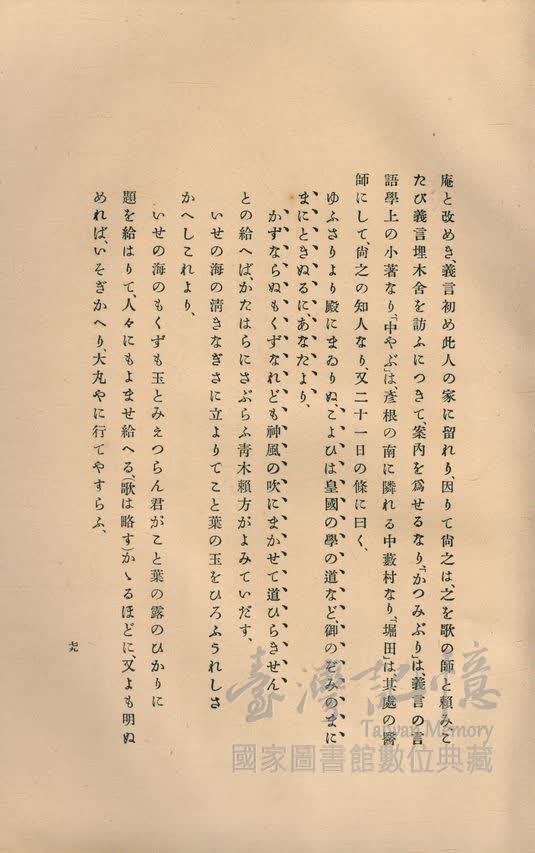 庵と改めき、義言初め此人の家に留れり、因りて尙之は、之を歌の師と賴み、こ
たび義言埋木舍を訪ふにつきて、案內を爲せるなり、「かつみぶり」は、義言の言
語學上の小著なり、「中やぶ」は、彥根の南に隣れる中藪村なり、「堀田」は其處の醫
師にして、尙之の知人なり、又二十一日の條に曰く、
ゆふさりより殿にまゐりぬ、こよひは皇國の學の道など、御のぞみのまに
まにときぬるに、あなたより、
かずならぬもくずなれども神風の吹にまかせて道ひらきせん
との給へば、かたはらにさぶらふ靑木賴方がよみていだす、
いせの海の淸きなぎさに立よりてこと葉の玉をひろふうれしさ
かへしこれより、
いせの海のもくずも玉とみえつらん君がこと葉の露のひかりに
題を給はりて、人々にもよませ給へる(歌は略す)かゝるほどに、又よも明ぬ
めれば、いそぎかへり、大丸やに行てやすらふ、
七九
臺灣記憶
Taiwan Memory
國家圖書館數位典藏